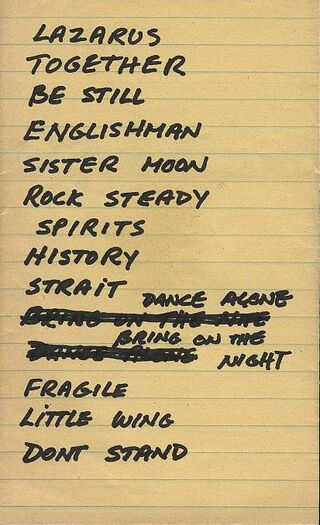 LAZARUS
TOGETHER
BE STILL
ENGLISHMAN
SISTER MOON
ROCK STEADY
SPIRITS
HISTORY
STRAIT
DANCE ALONE
BRING ON THE
NIGHT
FRAGILE
LITTLE WING
DONT STAND